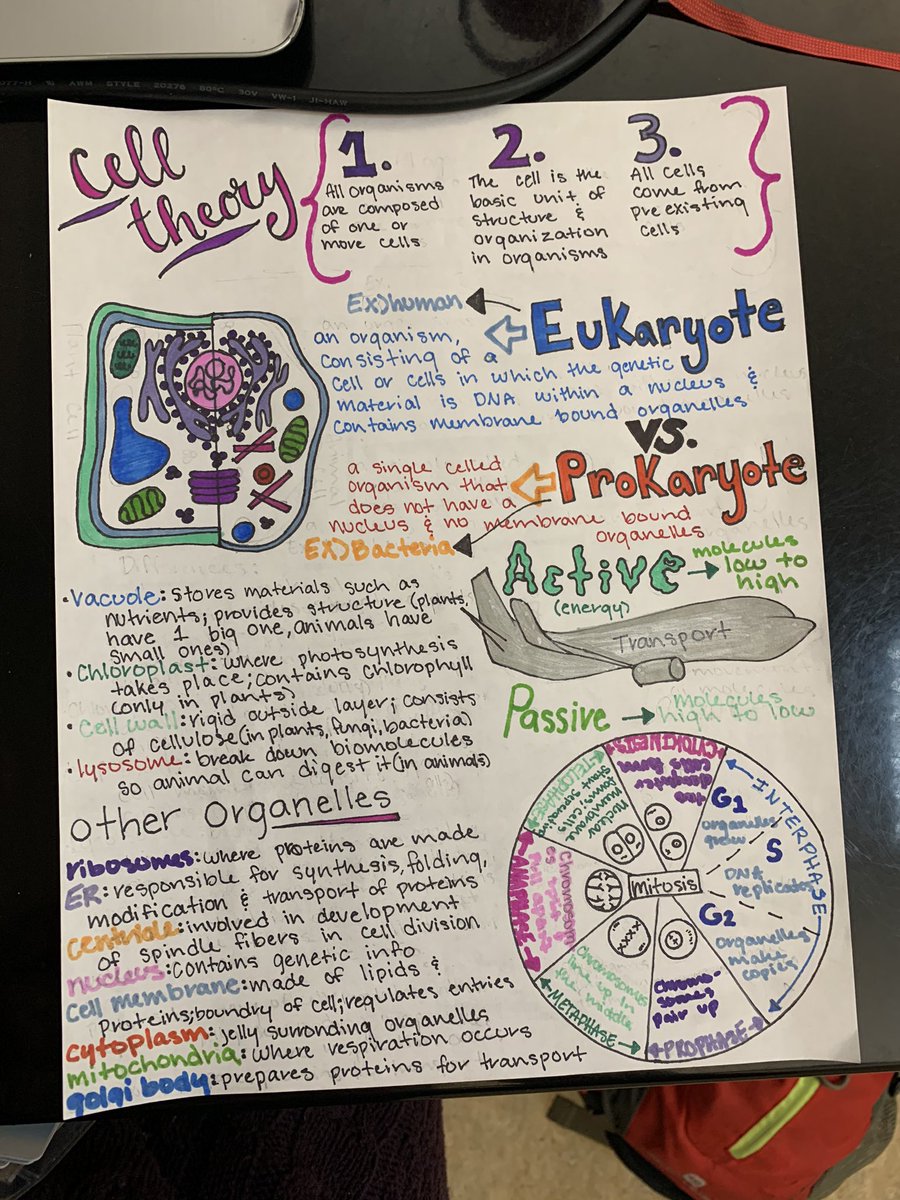 077-H AWM STYLE 20276 80°C 30V VW-1 JI-HAW
Cell
theory
1.
All organisms
are composed
of one or
more cells
2.
The cell is the
basic unit of
structure &
organization
in organisms
3.
All cells
come from
pre existing
cells
Ex)human
Eukaryote
an organism,
consisting of a
cell or cells in which the genetic
material is DNA within a nucleus &
contains membrane bound organelles
VS.
Prokaryote
a single celled
organism that
does not have a
nucleus & no membrane bound
organelles
Ex)Bacteria
Active
(energy)
molecules
low to
high
Transport
Passive
molecules
high to low
•Vacuole: Stores materials such as
nutrients; provides structure (plants
have 1 big one, animals have
small ones)
•Chloroplast: where photosynthesis
takes place; contains chlorophyll
(only in plants)
•Cell wall: rigid outside layer; consists
of cellulose (in plants, fungi, bacteria)
•lysosome: break down biomolecules
so animal can digest it (in animals)
Other Organelles
ribosomes: where proteins are made
ER: responsible for synthesis, folding,
modification & transport of proteins
Centriole: involved in development
of spindle fibers in cell division
nucleus: contains genetic info
Cell membrane: made of lipids &
Proteins; boundry of cell; regulates entries
cytoplasm: jelly surronding organelles
mitochondria: where respiration occurs
golgi body: prepares proteins for transport
Mitosis
INTERPHASE
G1
organelles
grow
S
DNA
replicates
G2
organelles
make
copies
PROPHASE
chromo-
somes
pair up
METAPHASE
chromosomes
line up in
the middle
ANAPHASE
chromosom
es
pull
apart
TELOPHASE
nuclear
membrane
forms; cells
start seperating
CYTOKINESIS
two
daughter
cells form